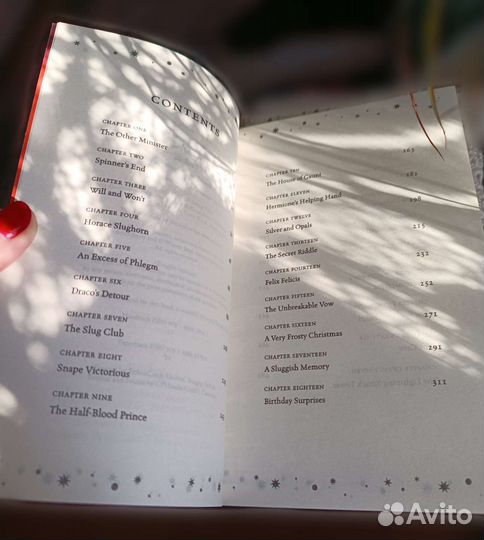 CONTENTS
CHAPTER ONE
The Other Minister
CHAPTER TWO
Spinner's End
CHAPTER THREE
Will and Won't
CHAPTER FOUR
Horace Slughorn
CHAPTER FIVE
An Excess of Phlegm
CHAPTER SIX
Draco's Detour
CHAPTER SEVEN
The Slug Club
CHAPTER EIGHT
Snape Victorious
CHAPTER NINE
The Half-Blood Prince
163
CHAPTER TEN
The House of Gaunt
181
CHAPTER ELEVEN
Hermione's Helping Hand
198
CHAPTER TWELVE
Silver and Opals
215
CHAPTER THIRTEEN
The Secret Riddle
232
CHAPTER FOURTEEN
Felix Felicis
252
CHAPTER FIFTEEN
The Unbreakable Vow
271
CHAPTER SIXTEEN
A Very Frosty Christmas
291
CHAPTER SEVENTEEN
A Sluggish Memory
311
CHAPTER EIGHTEEN
Birthday Surprises
Avito